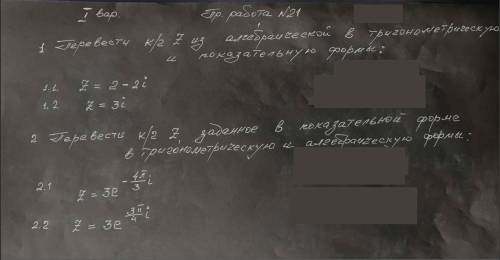 I вар. Пр. работа №21
1 Перевести к/z Z из алгебраической в тригонометрическую
и показательную формы:
1.1 Z = 2 - 2i
1.2 Z = 3i
2 Перевести к/z Z, заданное в показательной форме
в тригонометрическую и алгебраическую формы:
2.1 Z = 3e^{-4π/3 i}
2.2 Z = 3e^{3π/4 i}